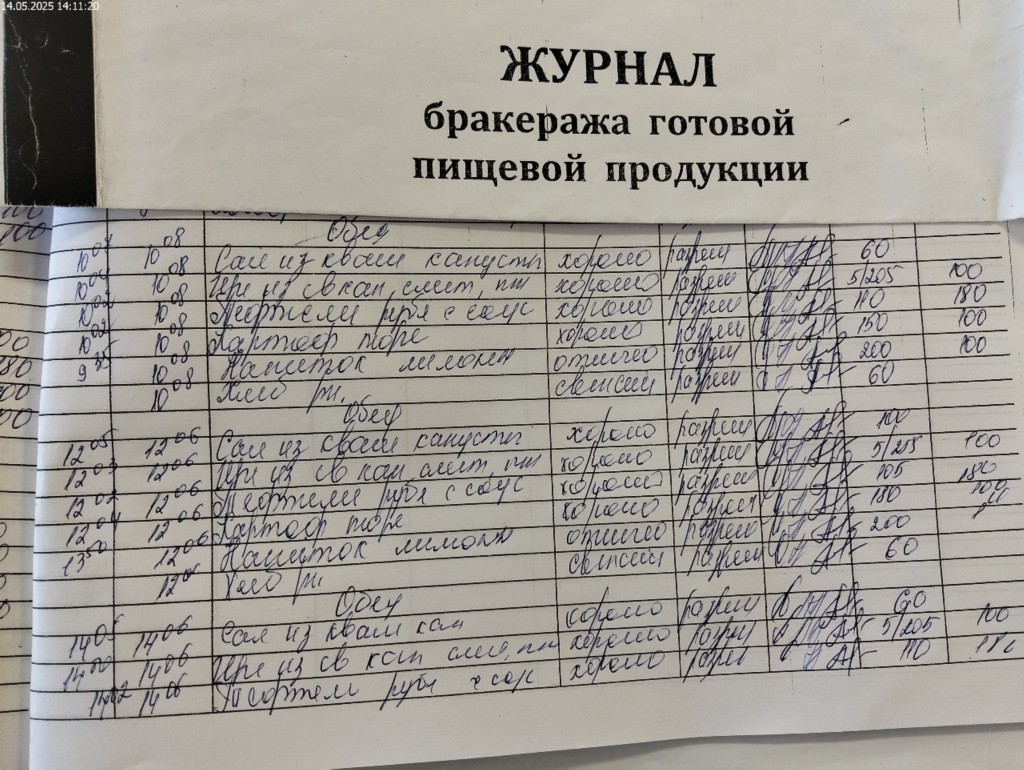 14.05.2025 14:11:20
ЖУРНАЛ
бракеража готовой
пищевой продукции
100
Обед
10 08 Сал из кваш капусты хорошо разреш 60
10 08 Щи из св кап, смет, хорошо разреш 5/205 100
10 02 10 08 Тефтели рубл с соус хорошо разреш 110 180
10 02 10 08 Картоф пюре хорошо разреш 150 100
9 10 08 Напиток лимонн отлично разреш 200 100
10 08 Хлеб рж. свежий разреш 60
Обед
12 05 12 06 Сал из кваш капусты хорошо разреш 100
12 03 12 06 Щи из св кап смет, хорошо разреш 5/255 100
12 02 12 06 Тефтели рубл с соус хорошо разреш 105 180
12 04 12 06 Картоф пюре хорошо разреш 180 100
13 50 12 06 Напиток лимонн отлично разреш 200
12 06 Хлеб рж свежий разреш 60
Обед
14 05 14 06 Сал из кваш кап хорошо разреш 60
14 00 14 06 Щи из св кап смет, хорошо разреш 5/205 100
14 02 14 06 Тефтели рубл с соус хорошо разреш 110 180